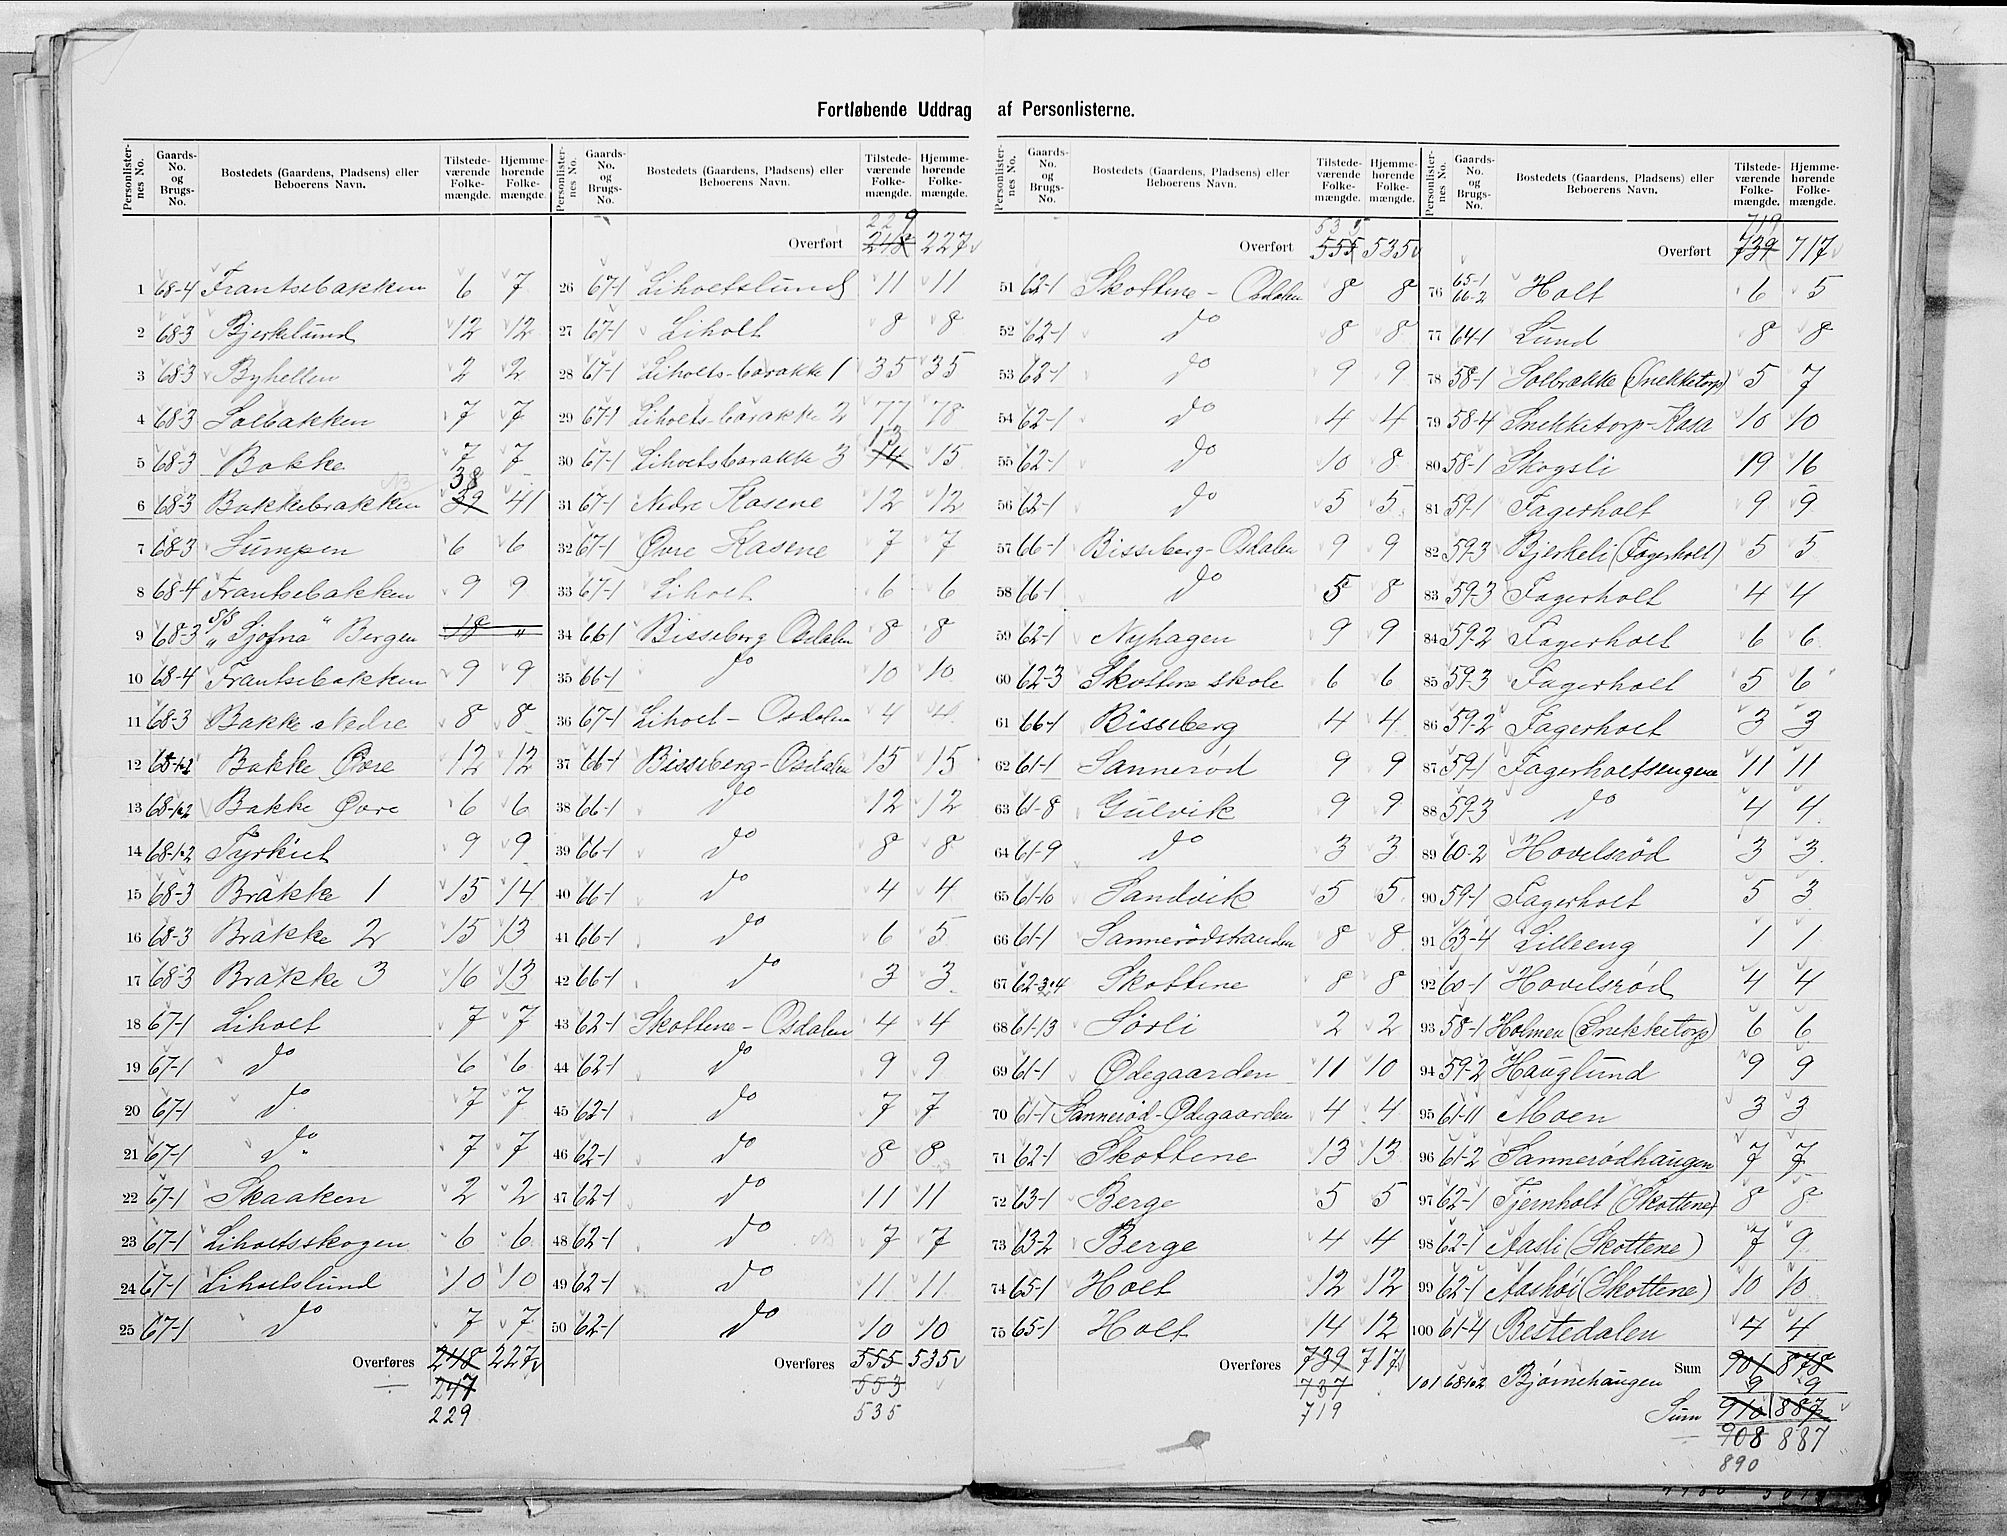 Fortløbende Uddrag af Personlisternes.
Personlister-nes No. Gaards-No. og Brugs-No. Bostedets (Gaardens, Pladsens) eller Beboerens Navn. Tilstede-værende Folke-mængde. Hjemme-hørende Folke-mængde.
1 68-4 Frantsebakken 6 7
2 68-3 Bjerkelund 12 12
3 68-3 Byhellen 2 2
4 68-3 Solbakken 7 7
5 68-3 Bakke 7 7
6 68-3 Bakkebrakken 39 38 41
7 68-3 Sumpen 6 6
8 68-4 Frantsebakken 9 9
9 68-3 S/S "Sjofna" Bergen 18 "
10 68-4 Frantsebakken 9 9
11 68-3 Bakke Nedre 8 8
12 68-1.2 Bakke Øvre 12 12
13 68-1.2 Bakke Øvre 6 6
14 68-1.2 Tyrkiet 9 9
15 68-3 Brakke 1 15 14
16 68-3 Brakke 2 15 13
17 68-3 Brakke 3 16 13
18 67-1 Liholt 7 7
19 67-1 do 6 6
20 67-1 do 7 7
21 67-1 do 7 7
22 67-1 Skaaken 2 2
23 67-1 Liholtsskogen 6 6
24 67-1 Liholtslund 10 10
25 67-1 do 7 7
Overføres 248 227
247
229
Personlister-nes No. Gaards-No. og Brugs-No. Bostedets (Gaardens, Pladsens) eller Beboerens Navn. Tilstede-værende Folke-mængde. Hjemme-hørende Folke-mængde.
229
Overført 248 227
26 67-1 Liholtslund 11 11
27 67-1 Liholt 8 8
28 67-1 Liholts-barakke 1 35 35
29 67-1 Liholts-barakke 2 77 78
30 67-1 Liholtsbarakke 3 14 13 15
31 67-1 Nedre Kasene 12 12
32 67-1 Øvre Kasene 7 7
33 67-1 Liholt 6 6
34 66-1 Bisseberg Osdalen 8 8
35 66-1 do 10 10
36 67-1 Liholt - Osdalen 4 4
37 66-1 Bisseberg-Osdalen 15 15
38 66-1 do 12 12
39 66-1 do 8 8
40 66-1 do 4 4
41 66-1 do 6 5
42 66-1 do 3 3
43 62-1 Skottene-Osdalen 4 4
44 62-1 do 9 9
45 62-1 do 7 7
46 62-1 do 8 8
47 62-1 do 11 11
48 62-1 do 7 7
49 62-1 do 11 11
50 62-1 do 10 10
Overføres 555 535
553
535
Personlister-nes No. Gaards-No. og Brugs-No. Bostedets (Gaardens, Pladsens) eller Beboerens Navn. Tilstede-værende Folke-mængde. Hjemme-hørende Folke-mængde.
535
Overført 555 535
51 62-1 Skottene - Osdalen 8 8
52 62-1 do 8 8
53 62-1 do 9 9
54 62-1 do 4 4
55 62-1 do 10 8
56 62-1 do 5 5
57 66-1 Bisseberg-Osdalen 9 9
58 66-1 do 5 8
59 62-1 Nyhagen 9 9
60 62-3 Skottene skole 6 6
61 66-1 Bisseberg 4 4
62 61-1 Sannerød 9 9
63 61-8 Gulvik 9 9
64 61-9 do 3 3
65 61-10 Sandvik 5 5
66 61-1 Sannerødstranden 8 8
67 62-3.4 Skottene 8 8
68 61-13 Sørli 2 2
69 61-1 Ødegaarden 11 10
70 61-1 Sannerød-Ødegaarden 4 4
71 62-1 Skottene 13 13
72 63-1 Berge 5 5
73 63-2 Berge 4 4
74 65-1 Holt 12 12
75 65-1 Holt 14 12
Overføres 739 717
737
719
Personlister-nes No. Gaards-No. og Brugs-No. Bostedets (Gaardens, Pladsens) eller Beboerens Navn. Tilstede-værende Folke-mængde. Hjemme-hørende Folke-mængde.
719
Overført 739 717
76 65-1 66-2 Holt 6 5
77 64-1 Lund 8 8
78 58-1 Solbrække (Snekketorp) 5 7
79 58-4 Snekketorp-Kasa 10 10
80 58-1 Skogsli 19 16
81 59-1 Fagerholt 9 9
82 59-3 Bjerkeli (Fagerholt) 5 5
83 59-3 Fagerholt 4 4
84 59-2 Fagerholt 6 6
85 59-3 Fagerholt 5 6
86 59-2 Fagerholt 3 3
87 59-1 Fagerholtsengene 11 11
88 59-3 do 4 4
89 60-2 Hovelsrød 3 3
90 59-1 Fagerholt 5 3
91 63-4 Lilleeng 1 1
92 60-1 Hovelsrød 4 4
93 58-1 Holmen (Snekketorp) 6 6
94 59-2 Hauglund 9 9
95 61-11 Moen 3 3
96 61-2 Sannerødhaugen 7 7
97 62-1 Tjernholt (Skottene) 8 8
98 62-1 Aasli (Skottene) 7 9
99 62-1 Aashøi (Skottene) 10 10
100 61-4 Bestedalen 4 4
Sum 901 878
101 68-1.2 Bjørnehaugen 9 9
Sum 910 887
908 887
890